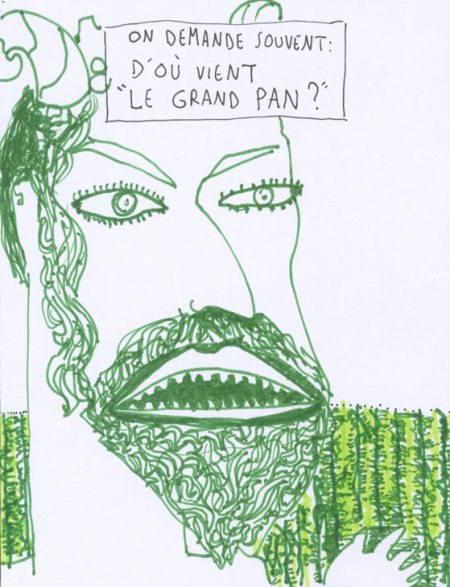 ON DEMANDE SOUVENT:
D'OÙ VIENT
"LE GRAND PAN?"